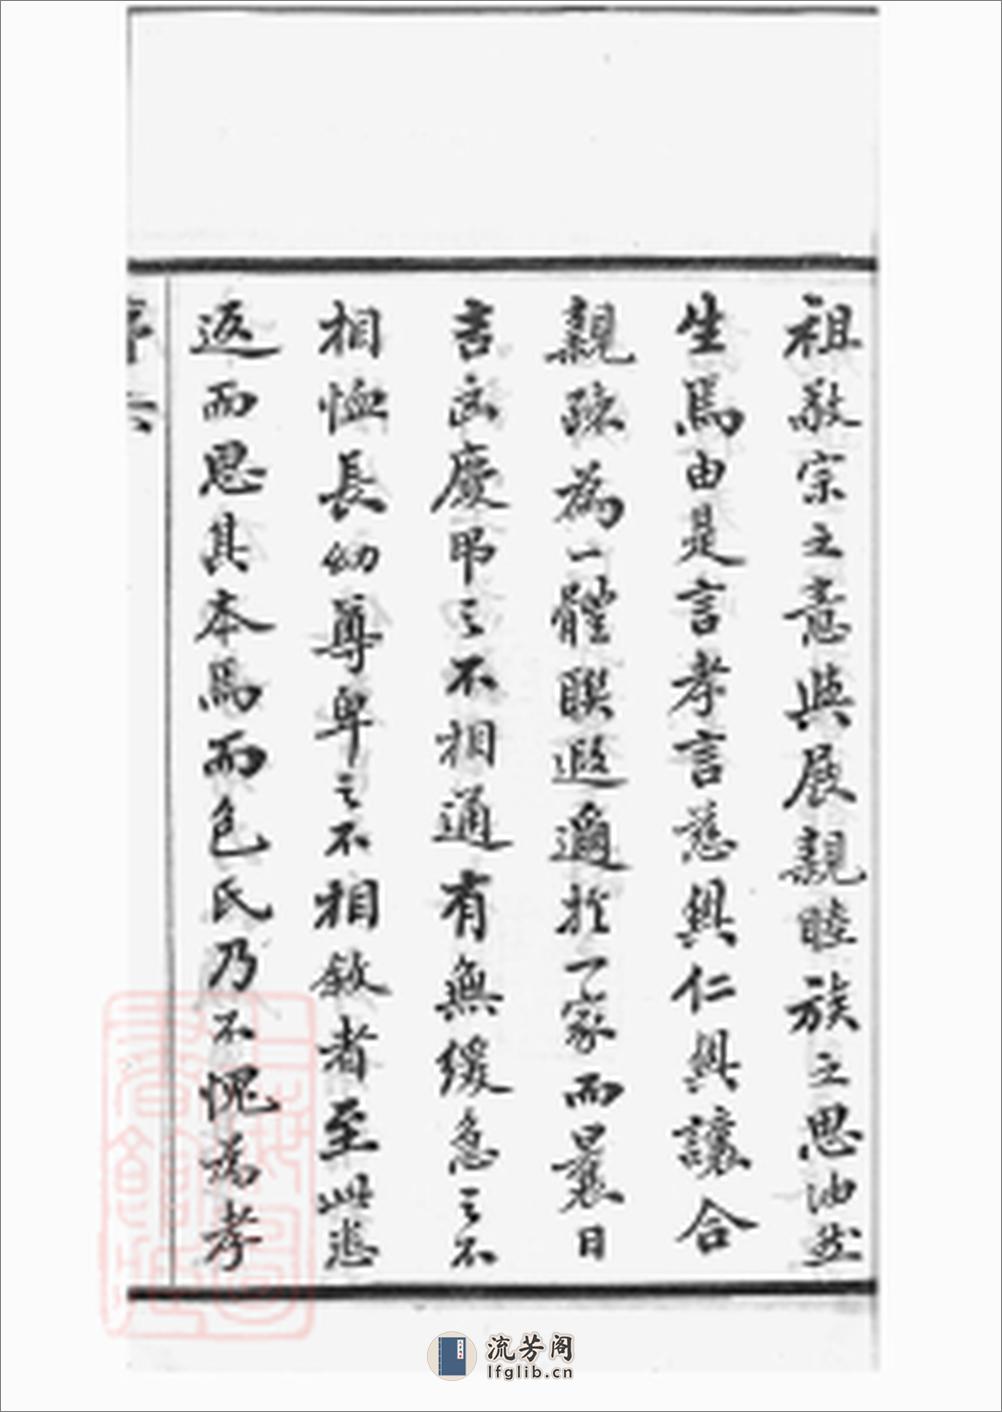 祖敬宗之意與展親睦族之思油然
生焉由是言孝言慈興仁興讓合
親疎為一體聯遐邇於一家而曩日
吉凶慶弔之不相通有無緩急之不
相恤長幼尊卑之不相敘者至此悉
返而思其本焉而包氏乃不愧為孝
序六
流芳阁
lfglib.cn